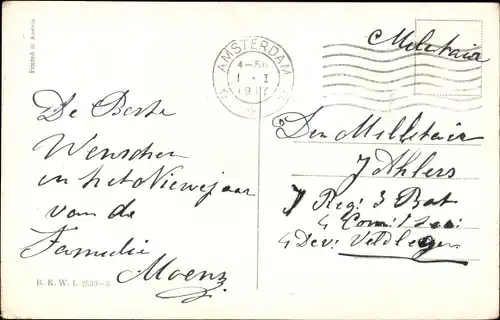 Printed in Austria
AMSTERDAM
4-5N
1.I
1917
Militair
De Beste
Wenschen
in het Niewejaar
van de
Familie
Moenz
B. K. W. I. 2530-5
Den Millitair
J Ahlers
7 Reg: 3 Bat
4 Comi
4 Dev: Veldleger